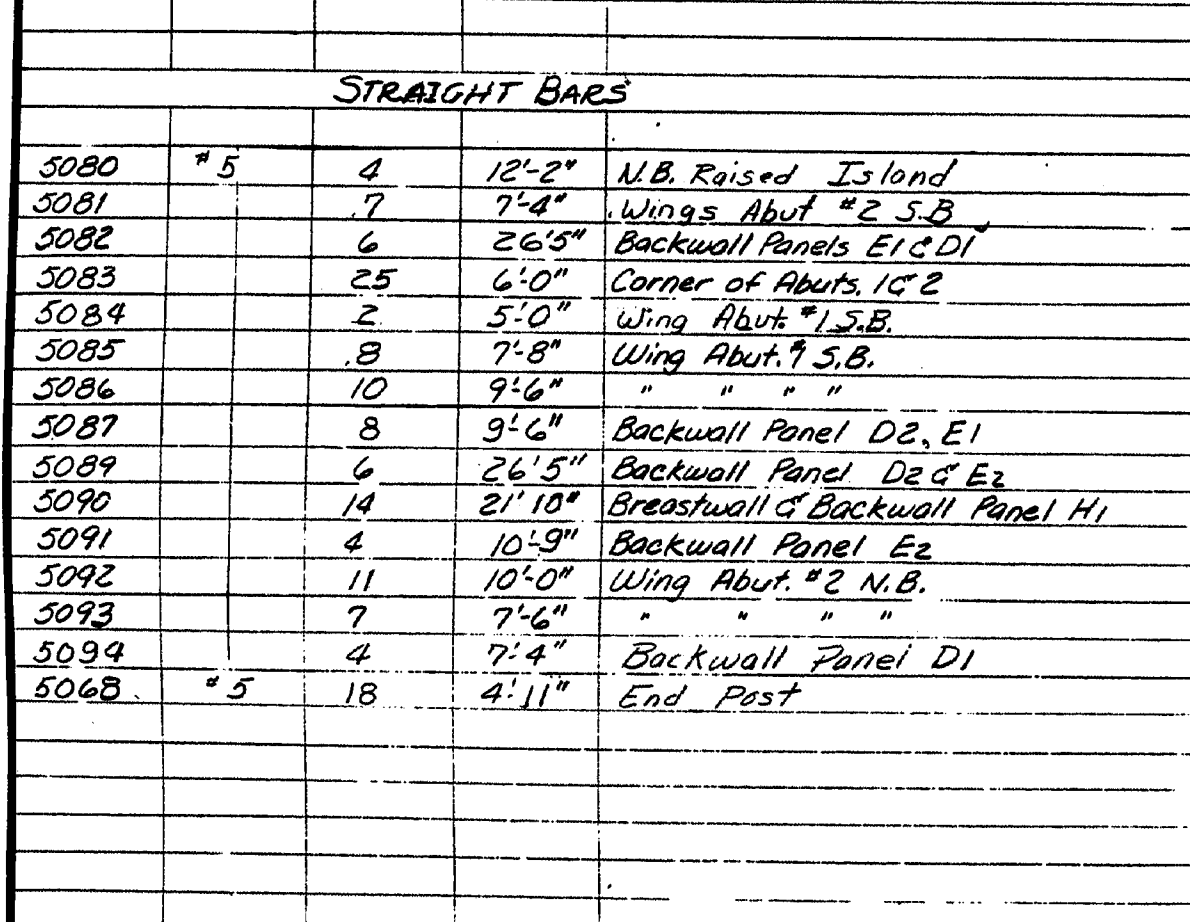 STRAIGHT BARS
5080 #5 4 12'-2" N.B. Raised Island
5081 7 7'-4" Wings Abut #2 S.B
5082 6 26'5" Backwall Panels E1 & D1
5083 25 6'-0" Corner of Abuts. 1 & 2
5084 2 5'-0" Wing Abut. #1 S.B.
5085 8 7'-8" Wing Abut. #1 S.B.
5086 10 9'-6" " " " "
5087 8 9'-6" Backwall Panel D2, E1
5089 6 26'5" Backwall Panel D2 & E2
5090 14 21'10" Breastwall & Backwall Panel H1
5091 4 10'-9" Backwall Panel E2
5092 11 10'-0" Wing Abut. #2 N.B.
5093 7 7'-6" " " " "
5094 4 7'-4" Backwall Panel D1
5068 #5 18 4'-11" End Post